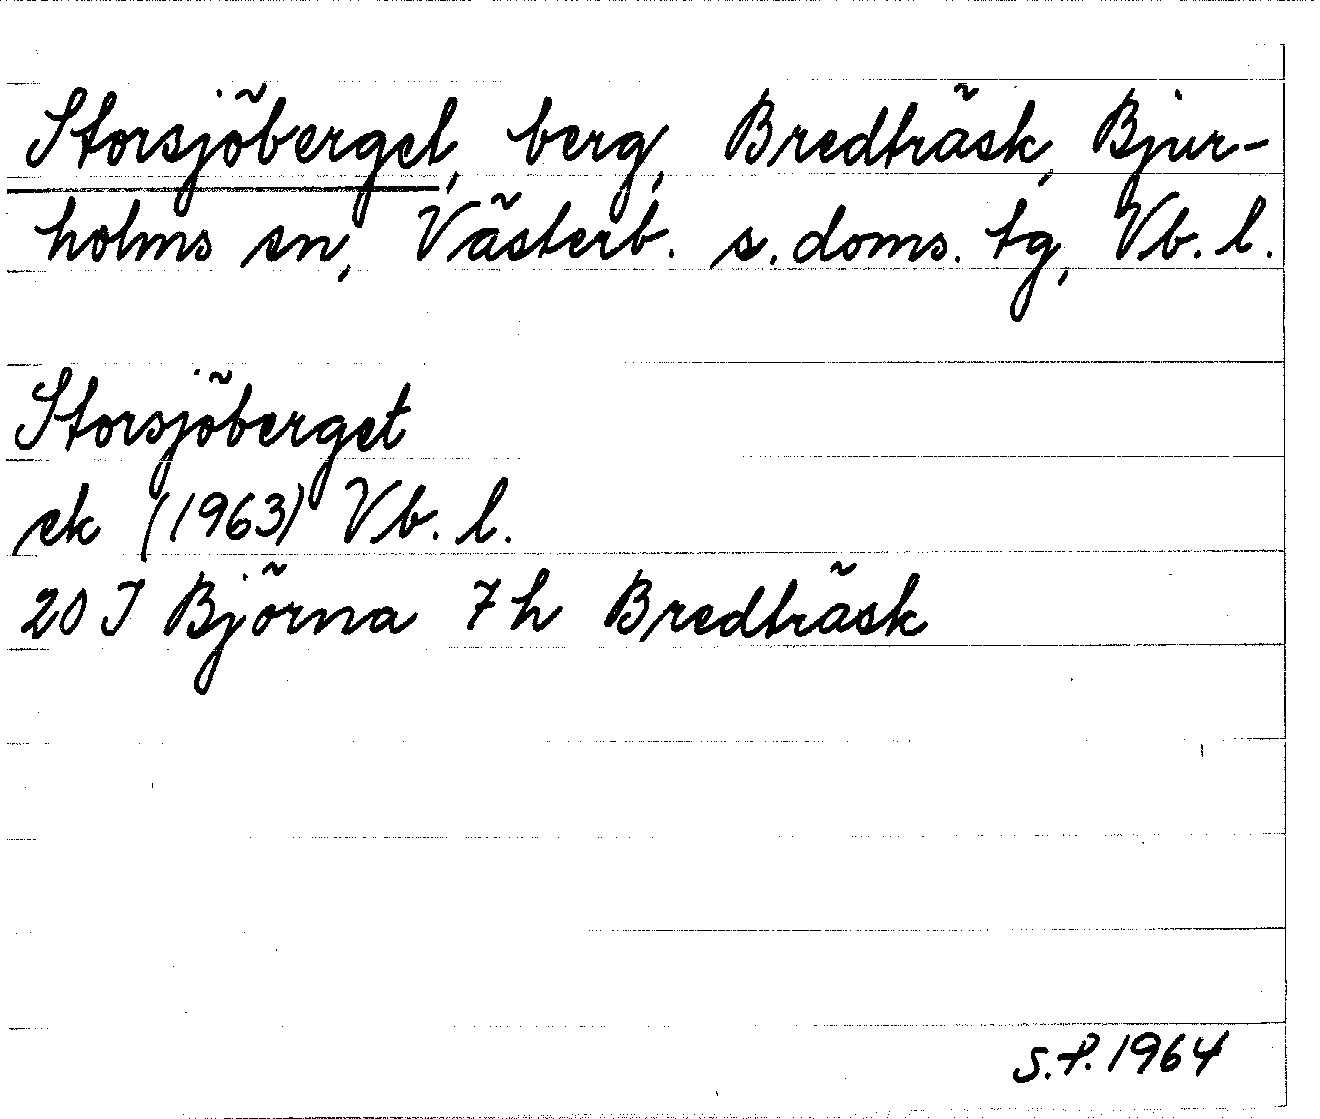 Storsjöberget, berg, Bredträsk, Bjur-
holms sn, Västerb. s. doms. tg, Vb. l.
Storsjöberget
ek (1963) Vb. l.
20 J Björna 7 h Bredträsk
S.P. 1964